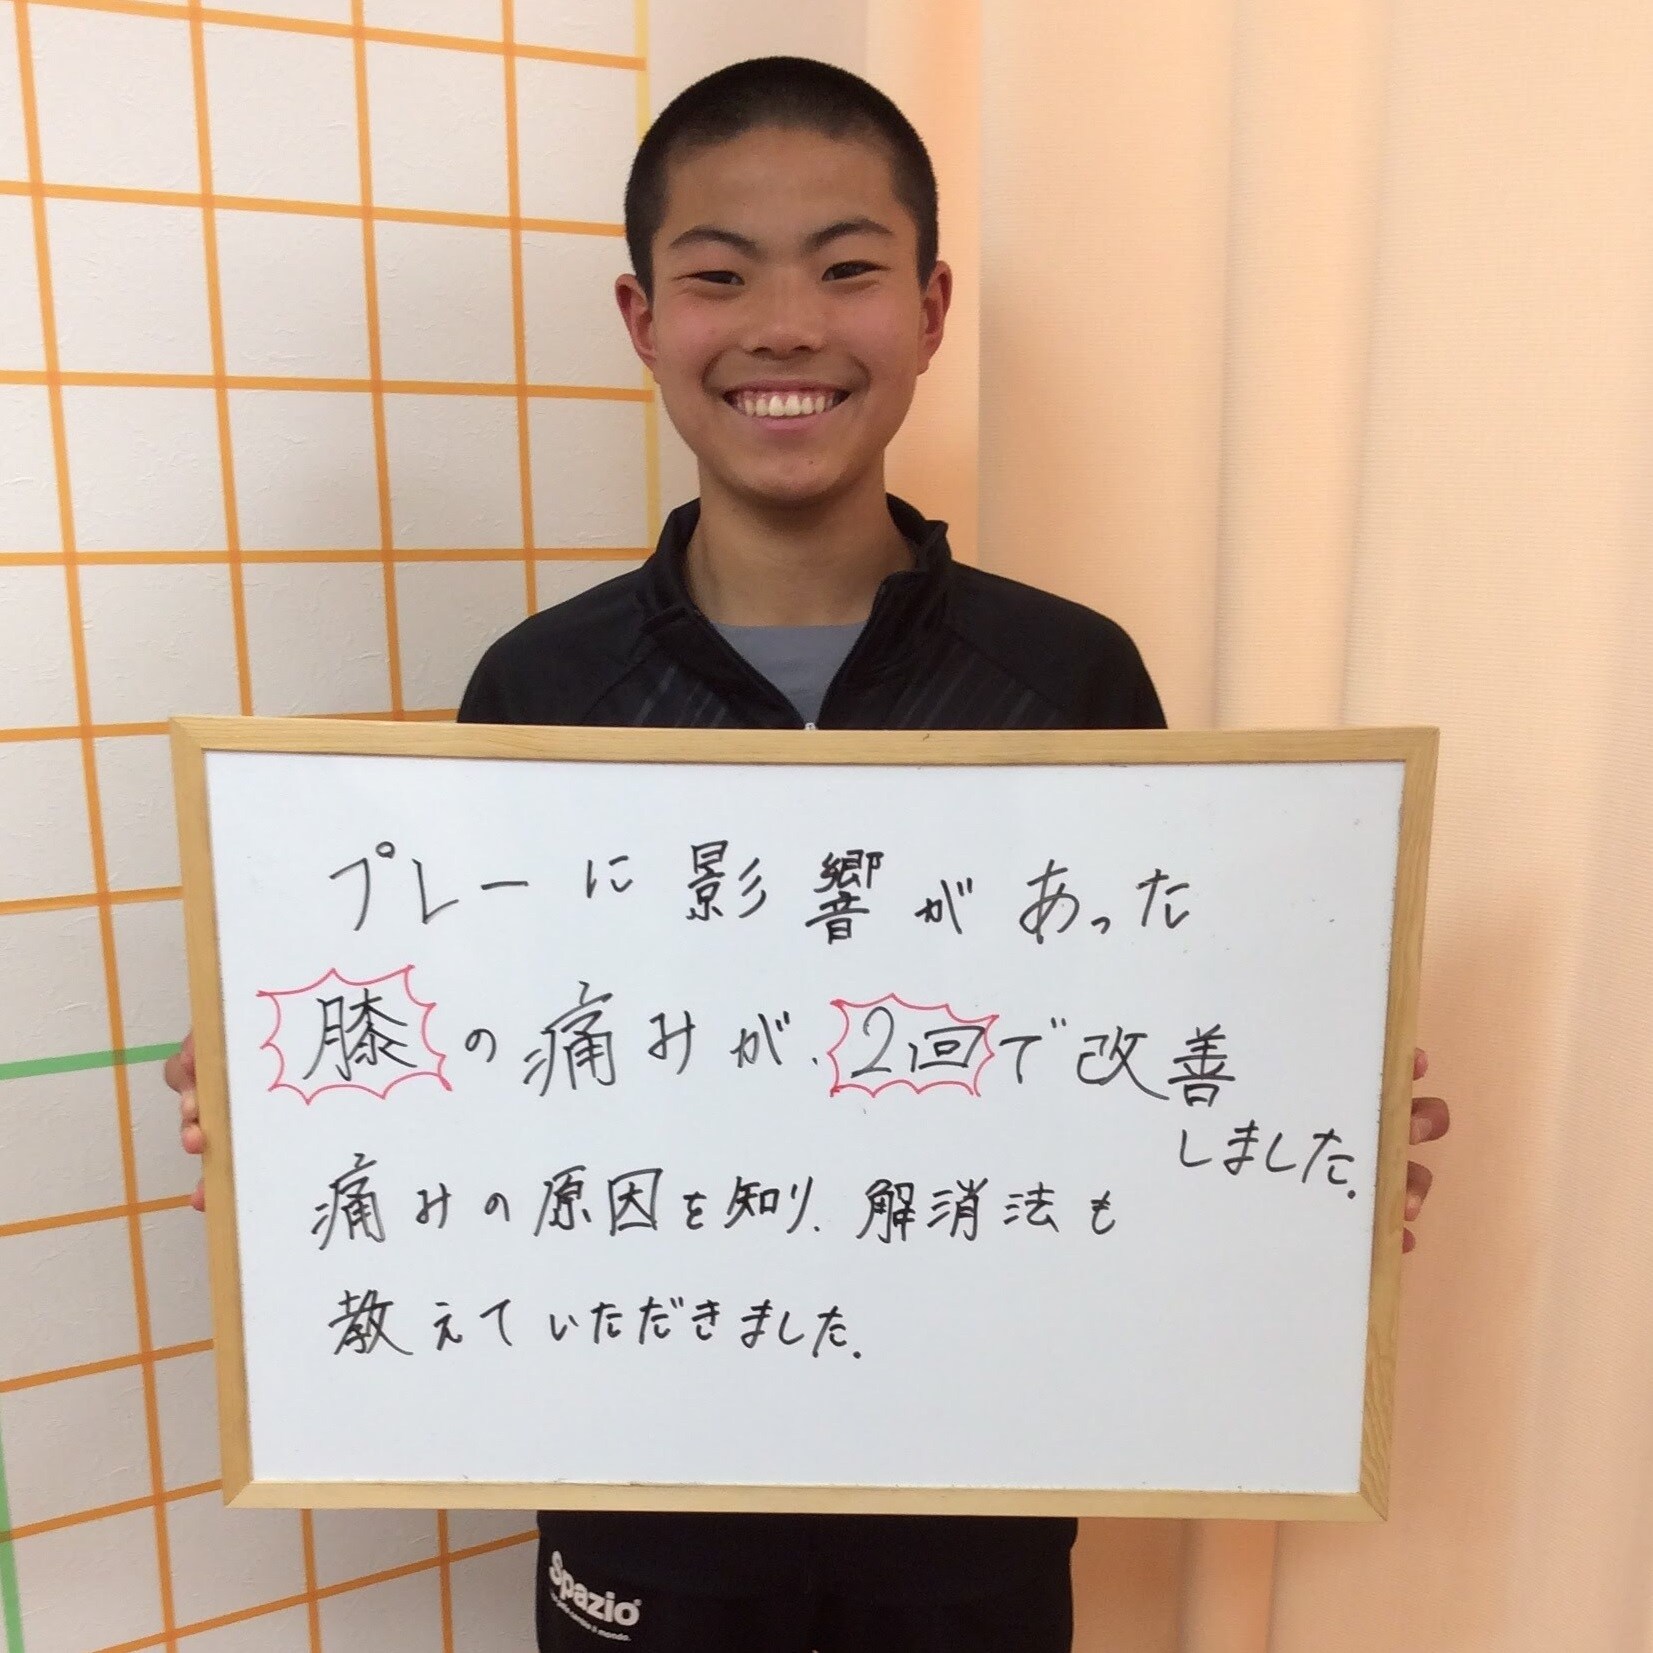 プレーに影響があった
膝の痛みが、2回で改善
しました。
痛みの原因を知り、解消法も
教えていただきました。
Spazio